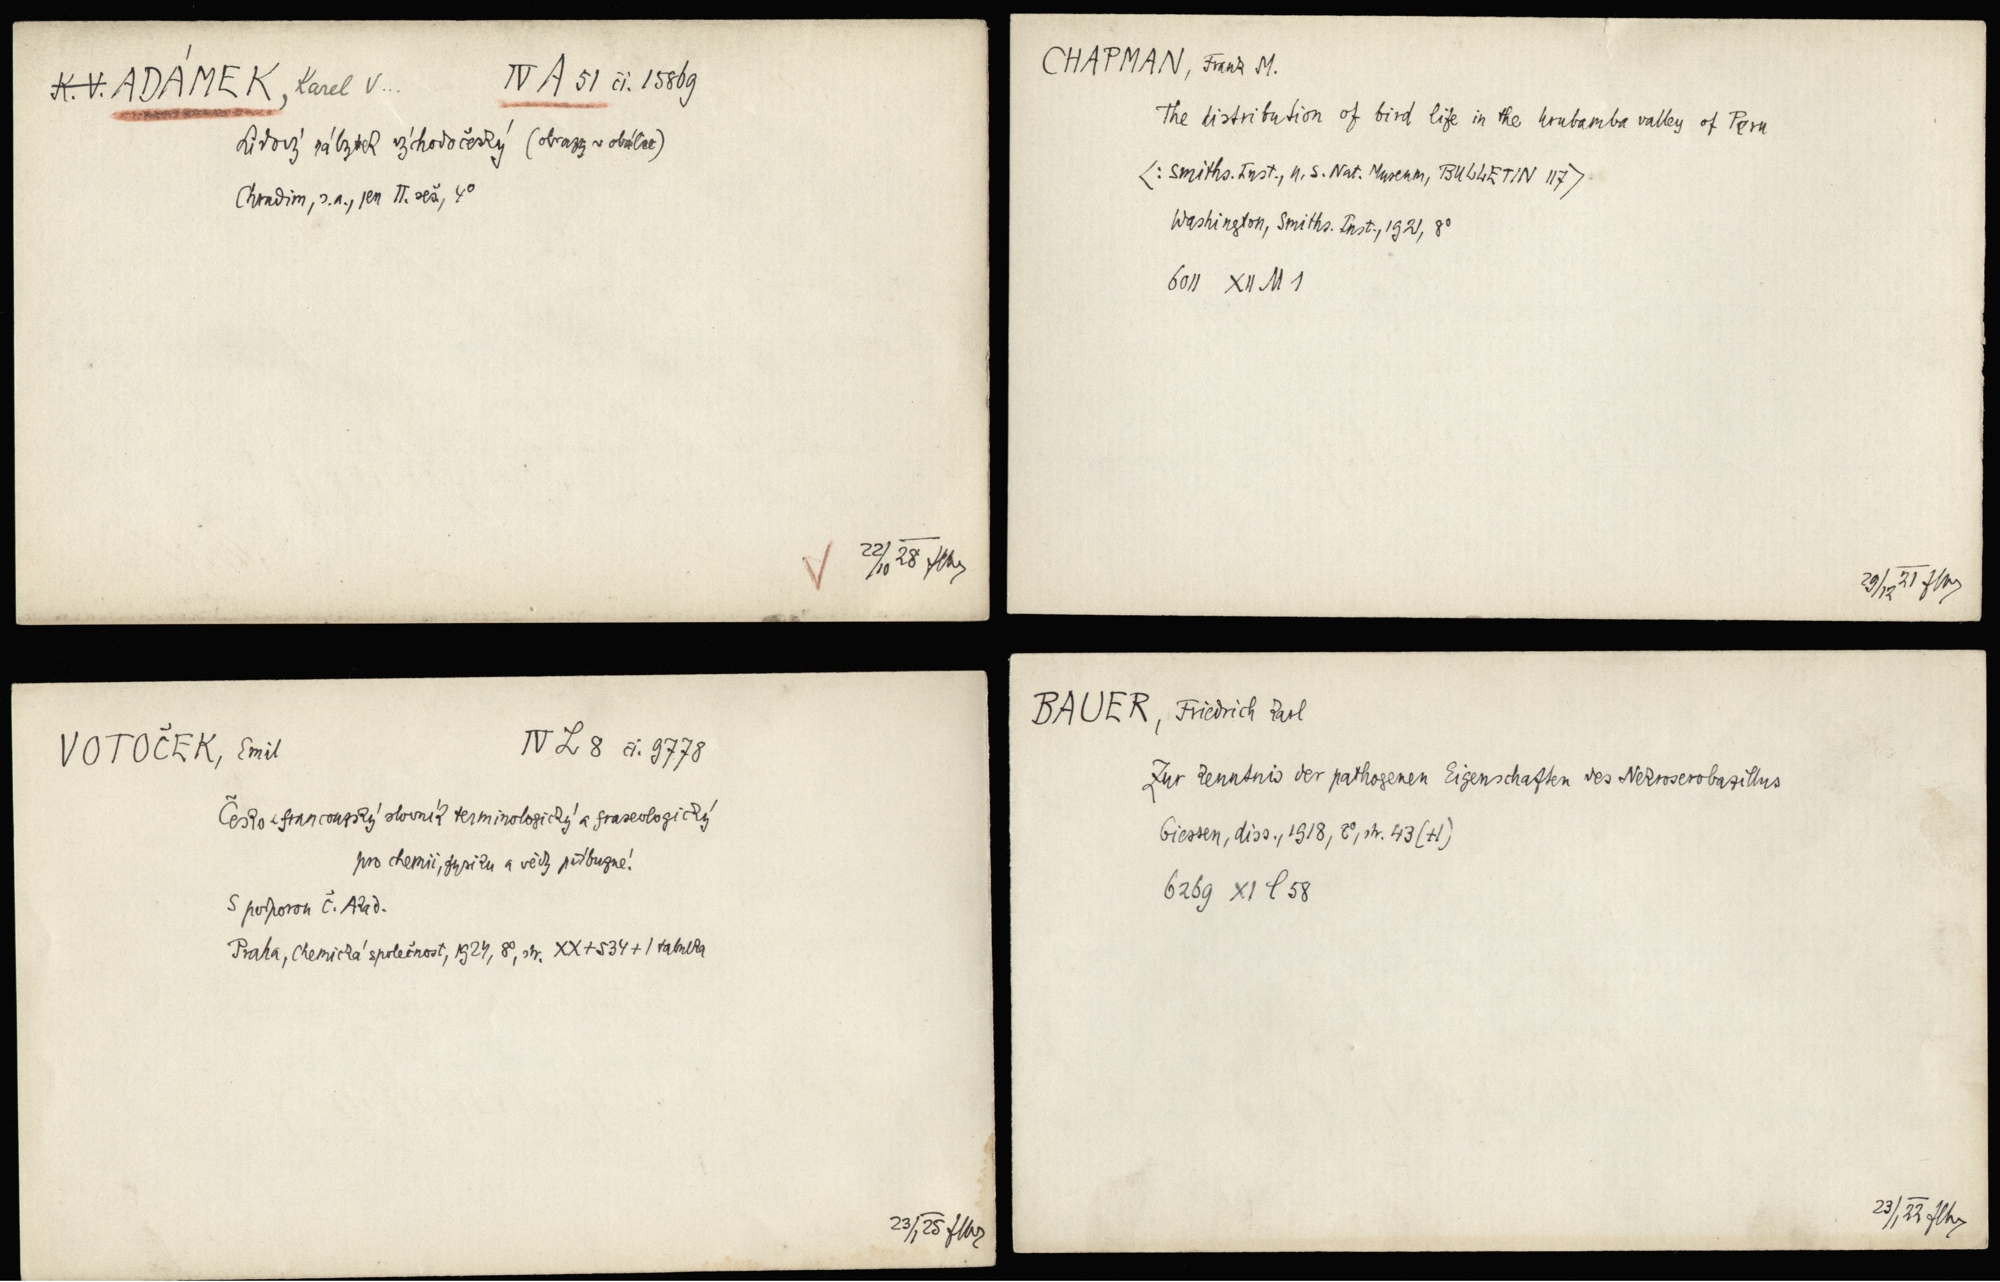 K. V. ADÁMEK, Karel V... IV A 51 či. 15869
Lidový nábytek východočeský (obrazy v obálce)
Chrudim, s.a., jen II. seš., 4°
22/10 28
CHAPMAN, Frank M.
The distribution of bird life in the Urubamba valley of Peru
<: Smiths. Inst., U. S. Nat. Museum, BULLETIN 117>
Washington, Smiths. Inst., 1921, 8°
6011 XII M 1
29/12 21
VOTOČEK, Emil IV L 8 či. 9778
Česko-francouzský slovník terminologický a fraseologický
pro chemii, fysiku a vědy příbuzné!
S podporou Č. Akad.
Praha, Chemická společnost, 1924, 8°, str. XX+534+1 tabulka
23/1 25
BAUER, Friedrich Karl
Zur Kenntnis der pathogenen Eigenschaften des Nekroserobazillus
Giessen, diss., 1918, 8°, str. 43(+1)
6269 XI l 58
23/1 22